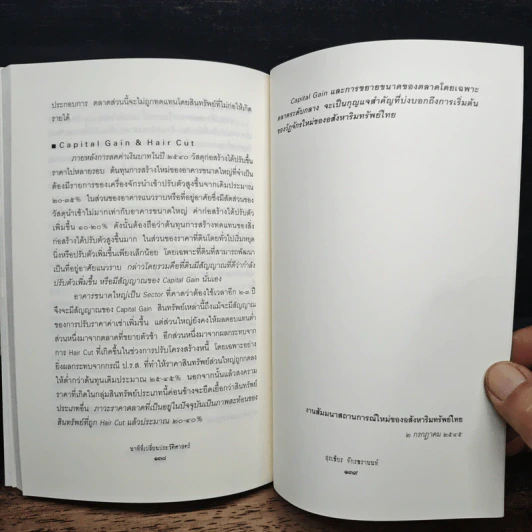 ประกอบการ ตลาดส่วนนี้จะไม่ถูกทดแทนโดยสินทรัพย์ที่ไม่ก่อให้เกิด
รายได้
■ Capital Gain & Hair Cut
ภายหลังการลดค่าเงินบาทในปี ๒๕๔๐ วัสดุก่อสร้างได้ปรับขึ้น
ราคาไปหลายรอบ ต้นทุนการสร้างใหม่ของอาคารขนาดใหญ่ที่จำเป็น
ต้องมีรายการของเครื่องจักรนำเข้าปรับตัวสูงขึ้นจากเดิมประมาณ
๒๐-๓๕% ในส่วนของอาคารแนวราบหรือที่อยู่อาศัยซึ่งมีสัดส่วนของ
วัสดุนำเข้าไม่มากเท่ากับอาคารขนาดใหญ่ ค่าก่อสร้างได้ปรับตัว
เพิ่มขึ้น ๑๐-๒๐% ดังนั้นต้องถือว่าต้นทุนการสร้างทดแทนของสิ่ง
ก่อสร้างได้ปรับตัวสูงขึ้นมาก ในส่วนของราคาที่ดินโดยทั่วไปเริ่มหยุด
นิ่งหรือปรับตัวเพิ่มขึ้นเพียงเล็กน้อย โดยเฉพาะที่ดินที่สามารถพัฒนา
เป็นที่อยู่อาศัยแนวราบ กล่าวโดยรวมคือที่ดินมีสัญญาณที่ดีว่ากำลัง
ปรับตัวเพิ่มขึ้น หรือมีสัญญาณของ Capital Gain นั่นเอง
อาคารขนาดใหญ่เป็น Sector ที่คาดว่าต้องใช้เวลาอีก ๒-๓ ปี
จึงจะมีสัญญาณของ Capital Gain สินทรัพย์เหล่านี้ถึงแม้จะมีสัญญาณ
ของการปรับราคาค่าเช่าเพิ่มขึ้น แต่ส่วนใหญ่ยังคงให้ผลตอบแทนต่ำ
ส่วนหนึ่งมาจากตลาดที่ขยายตัวช้า อีกส่วนหนึ่งมาจากผลกระทบจาก
การ Hair Cut ที่เกิดขึ้นในช่วงการปรับโครงสร้างหนี้ โดยเฉพาะอย่าง
ยิ่งผลกระทบจากกรณี ป.ร.ส. ที่ทำให้ราคาสินทรัพย์ส่วนใหญ่ถูกลดลง
ให้ต่ำกว่าต้นทุนเดิมประมาณ ๒๕-๔๕% นอกจากนั้นแล้วสงคราม
ราคาที่เกิดในกลุ่มสินทรัพย์ประเภทนี้ค่อนข้างจะยืดเยื้อกว่าสินทรัพย์
ประเภทอื่น ภาวะราคาตลาดที่เป็นอยู่ในปัจจุบันเป็นภาพสะท้อนของ
สินทรัพย์ที่ถูก Hair Cut แล้วประมาณ ๒๐-๔๐%
นาทีที่เปลี่ยนประวัติศาสตร์
๑๓๘
Capital Gain และการขยายขนาดของตลาดโดยเฉพาะ
ตลาดระดับกลาง จะเป็นกุญแจสำคัญที่บ่งบอกถึงการเริ่มต้น
ของวัฏจักรใหม่ของอสังหาริมทรัพย์ไทย
งานสัมมนาสถานการณ์ใหม่ของอสังหาริมทรัพย์ไทย
๒ กรกฎาคม ๒๕๔๕
๑๓๙